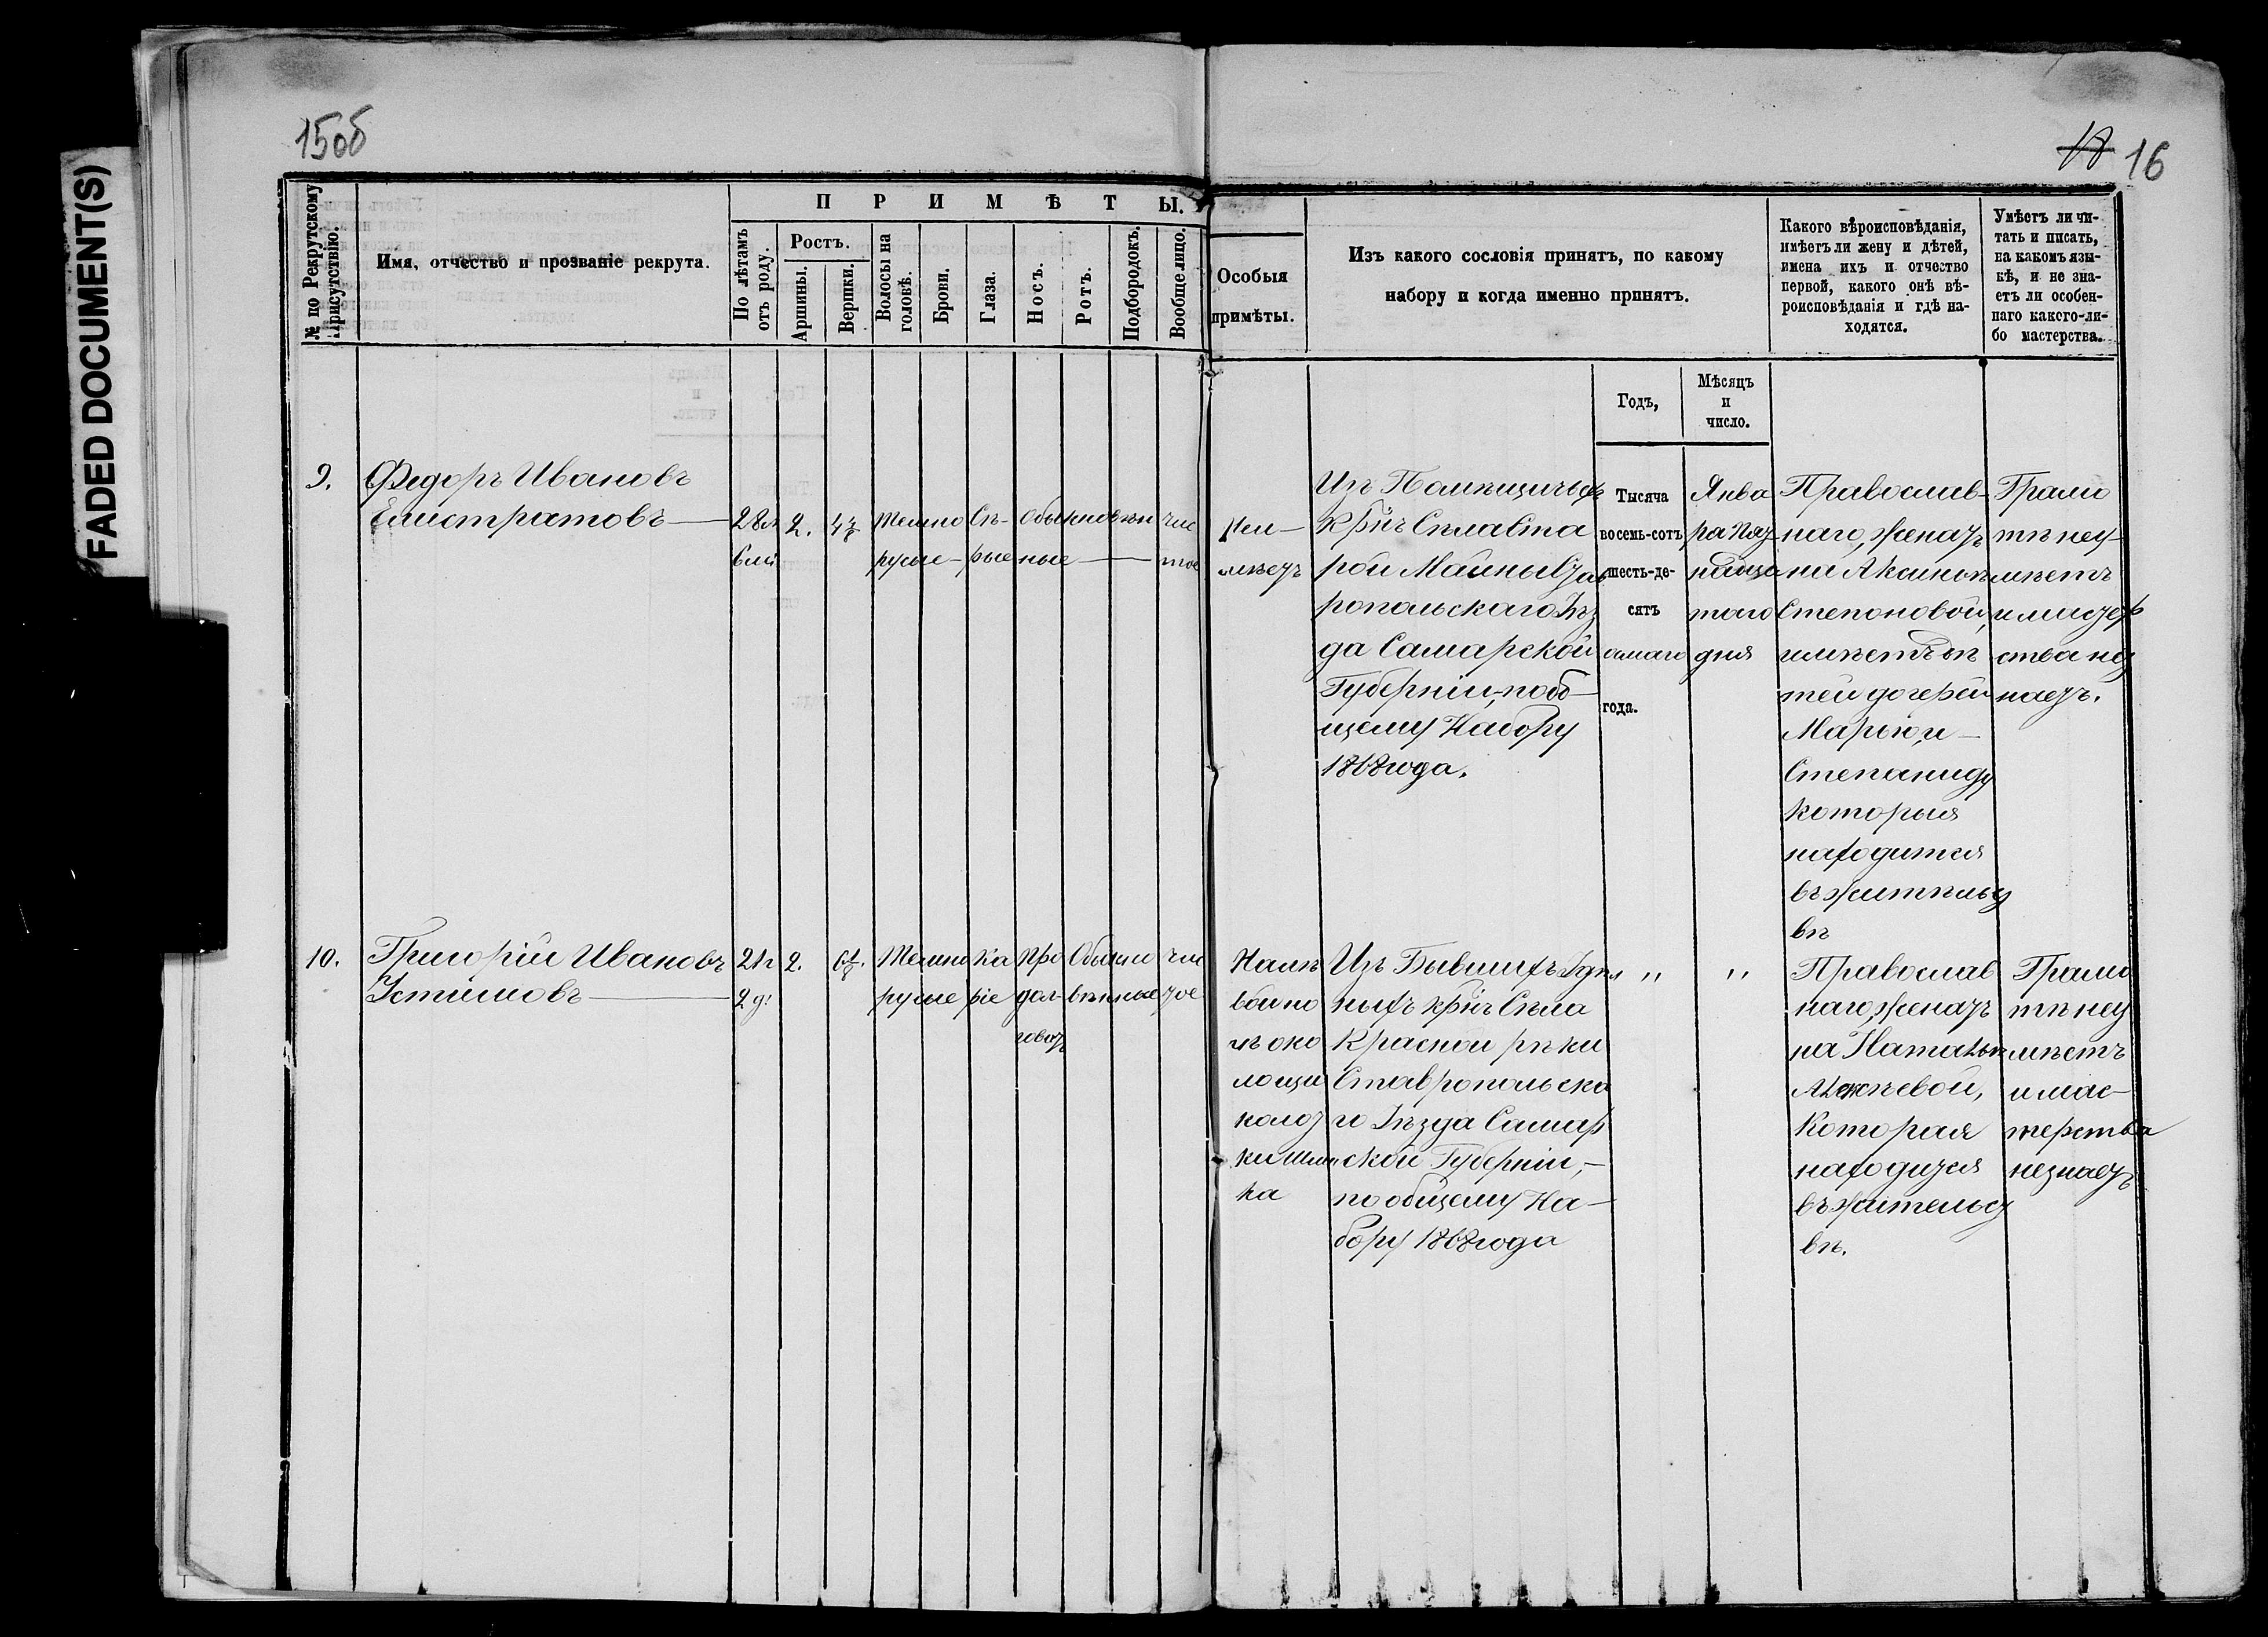 FADED DOCUMENT(S)
15об
17 16
№ по Рекрутскому Присутствію.
Имя, отчество и прозваніе рекрута.
ПРИМѢТЫ.
По лѣтамъ отъ роду.
Ростъ.
Аршины.
Вершки.
Волосы на головѣ.
Брови.
Глаза.
Носъ.
Ротъ.
Подбородокъ.
Вообще лицо.
Особыя
примѣты.
Изъ какого сословія принятъ, по какому
набору и когда именно принятъ.
Какого вѣроисповѣданія,
имѣетъ ли жену и дѣтей,
имена ихъ и отчество
первой, какого онѣ вѣ-
роисповѣданія и гдѣ на-
ходятся.
Умѣетъ ли чи-
тать и писать,
на какомъ язы-
кѣ, и не зна-
етъ ли особен-
наго какого-ли-
бо мастерства.
Годъ,
Мѣсяцъ
и
число.
9.
Федоръ Ивановъ
Елистратовъ
28л
6м
2.
4 4/8
Темно
русые
Сѣ-
рые
Обыкновен
ные
чис
тое
Неи-
мѣетъ
Изъ Помѣщичьихъ
крнъ Села Ста
рой Майны Став
ропольскаго Уѣз
да Самарской
Губерніи, по об-
щему Набору
1868 года.
Тысяча
восемь-сотъ
шесть-де-
сятъ
года.
Янва
ря Пят
надца
таго
дня
Православ-
наго, женатъ
на Аксиньѣ
Степоновой,
имѣетъ дѣ
тей дочерей
Марью, и
Степаниду
которыя
находится
въ жительст
вѣ
Грамо
тѣ неу
мѣетъ
и мастер
ства нез
наетъ.
10.
Григорій Ивановъ
Устимовъ
21г
2 д.
2.
6 4/8.
Темно
русые
Ка
ріе
Про
дол-
говат
Обыкно
венные
чис
тое
На лѣ
вой но
гѣ око
ло щи
колот
ки шиш
ка
Изъ Бывшихъ Удѣл
ныхъ крнъ Села
Красной рѣки
Ставропольска
го Уѣзда Самар
ской Губерніи,
по общему На-
бору 1868 года
" "
Православ
наго, женатъ
на Натальѣ
Алексѣевой,
Которая
находится
въ жительст
вѣ.
Грамо
тѣ неу
мѣетъ
и мас-
терства
незнаетъ